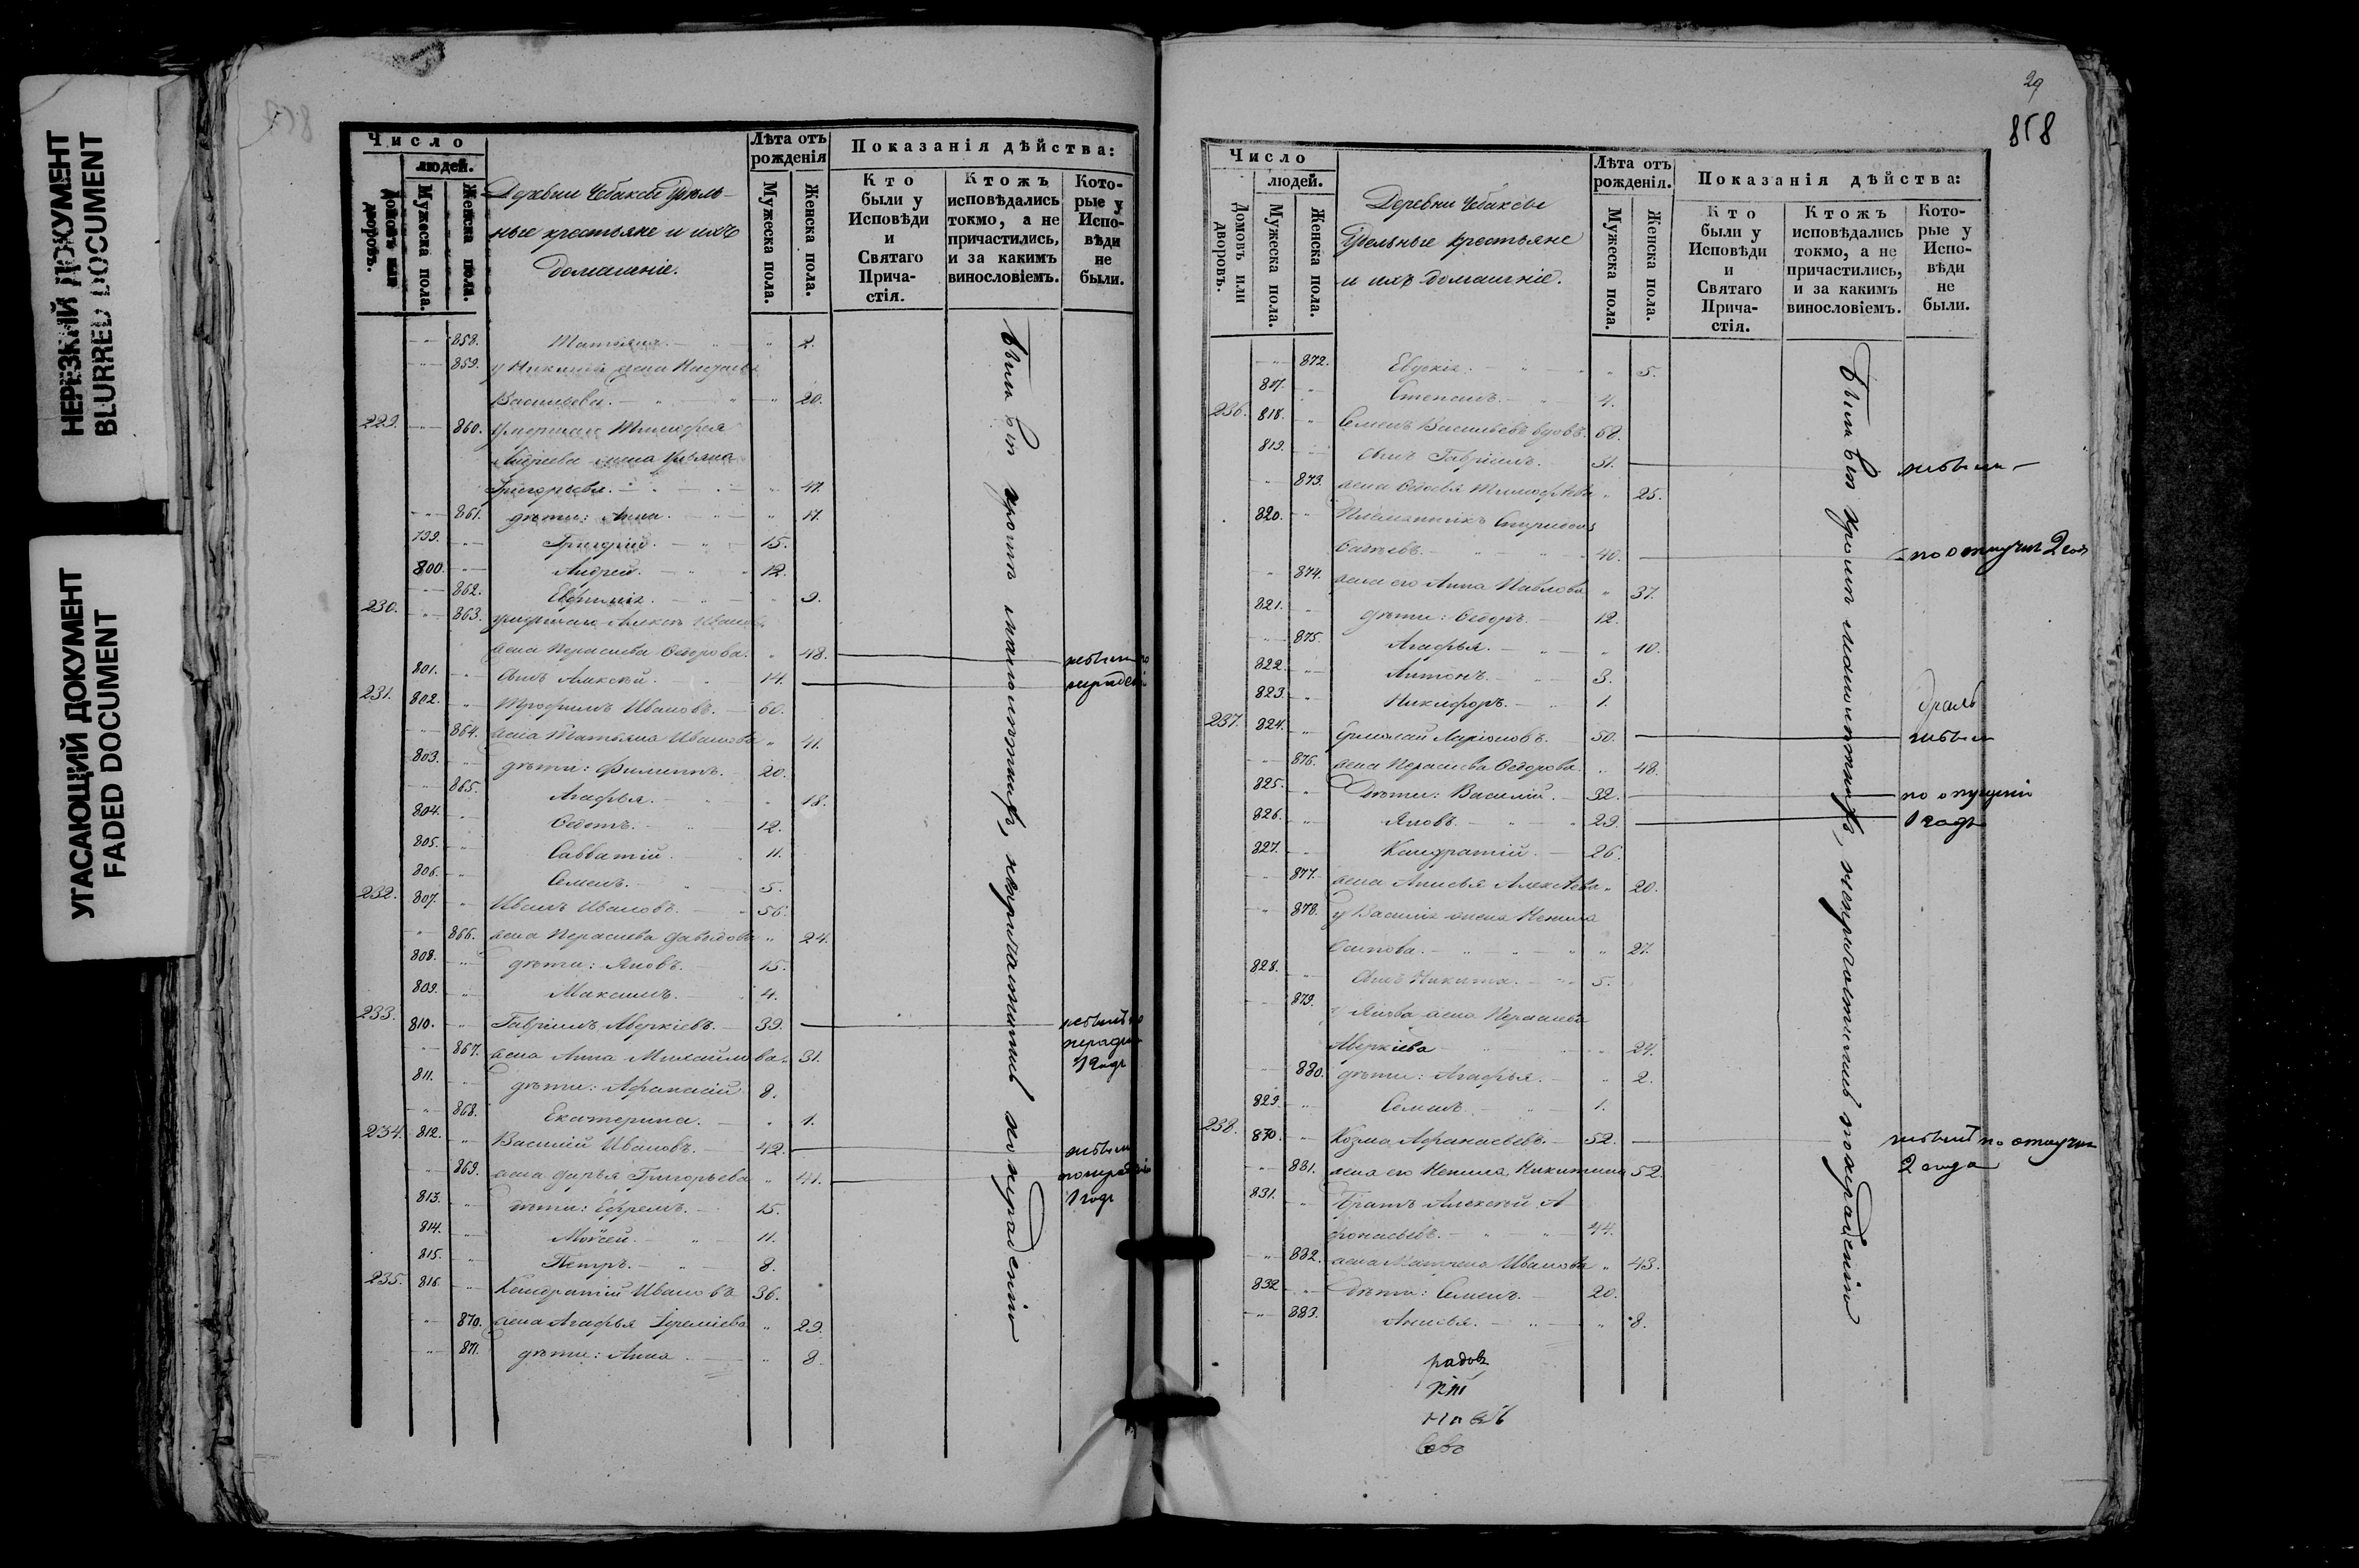 НЕРЕЗКИЙ ДОКУМЕНТ
BLURRED DOCUMENT
УГАСАЮЩИЙ ДОКУМЕНТ
FADED DOCUMENT
Число
людей.
Домовъ или дворовъ.
Мужеска пола.
Женска пола.
Деревни Чебаксы Удѣль-
ные крестьяне и ихъ
домашніе.
Лѣта отъ рожденія
Мужеска пола.
Женска пола.
Показанія дѣйства:
Кто были у Исповѣди и Святаго Прича-стія.
Ктожъ исповѣдались токмо, а не причастились, и за какимъ винословіемъ.
Кото-рые у Испо-вѣди не были.
858. Татьяна. 2.
859. у жена
Васильева. 20.
229. 860. Умершаго Тимофея
Андреева жена Ульяна
Григорьева. 47.
861. дѣти: Анна. 17.
799. Григорій. 15.
800. Андрей. 12.
862. Евфимія. 9.
230. 863. умершаго Иванова
жена Параскева Ѳедорова. 48.
801. Сынъ Алексѣй. 14.
231. 802. Трофимъ Ивановъ. 60.
864. жена Татьяна Иванова 41.
803. дѣти: Филиппъ. 20.
865. Агафья. 18.
804. Ѳедотъ. 12.
805. Савватій. 11.
806. Семенъ. 5.
232. 807. Иванъ Ивановъ. 56.
866. жена Параскева Давыдова 24.
808. дѣти: Яковъ. 15.
809. Максимъ. 4.
233. 810. Гавріилъ Аверкіевъ. 39.
867. жена Анна Михайлова. 31.
1 годъ
811. дѣти: Афанасій 8.
868. Екатерина. 1.
234. 812. Василій Ивановъ. 42.
869. жена Дарья Григорьева 41.
1 годъ
813. дѣти: Ефремъ. 15.
814. Мойсей. 11.
815. Петръ. 8.
235. 816. Кандратій Ивановъ 36.
870. жена Агафья Еремѣева 29.
871. дѣти: Анна 8.
Были всѣ кромѣ малолѣтнихъ, непричастились понерадѣнію
29
858
Число
людей.
Домовъ или дворовъ.
Мужеска пола.
Женска пола.
Деревни Чебаксы
Удѣльные крестьяне
и ихъ домашніе.
Лѣта отъ рожденія.
Мужеска пола.
Женска пола.
Показанія дѣйства:
Кто были у Исповѣди и Святаго Прича-стія.
Ктожъ исповѣдались токмо, а не причастились, и за какимъ винословіемъ.
Кото-рые у Испо-вѣди не были.
872. Евдокія. 5.
817. Степанъ. 4.
236. 818. Семенъ Васильевъ вдовъ. 68.
819. Сынъ Гавріилъ. 31.
873. жена Ѳедосья Тимофѣева 25.
820. Племянникъ Спиридонъ
40. по отлучкѣ 2 года
874. жена его Анна Павлова 37.
821. дѣти: Ѳедоръ. 12.
875. Агафья. 10.
822. Антонъ. 3.
823. Никифоръ. 1.
237. 824. Ермолай Ларіоновъ. 50.
876. жена Параскева Ѳедорова. 48.
825. Дѣти: Василій. 32.
826. Яковъ. 29. 1 годъ
827. Кандратій. 26.
877. жена Анисья Алексѣева 20.
878. у Василія жена Ненила
Осипова. 27.
828. Сынъ Никита. 5.
879. у Якова жена Параскева
Аверкіева 24.
880. дѣти: Агафья. 2.
829. Семенъ. 1.
238. 830. Козма Афанасьевъ. 52. небылъ по отлучкѣ
881. жена его Ненила Никитина 52. 2 года
831. Братъ Алексѣй А-
фонасьевъ. 44.
882. жена Матрена Иванова 43.
832. Дѣти: Семенъ. 20.
883. Анисья. 8.
Были всѣ кромѣ малолѣтнихъ, непричастились понерадѣнію